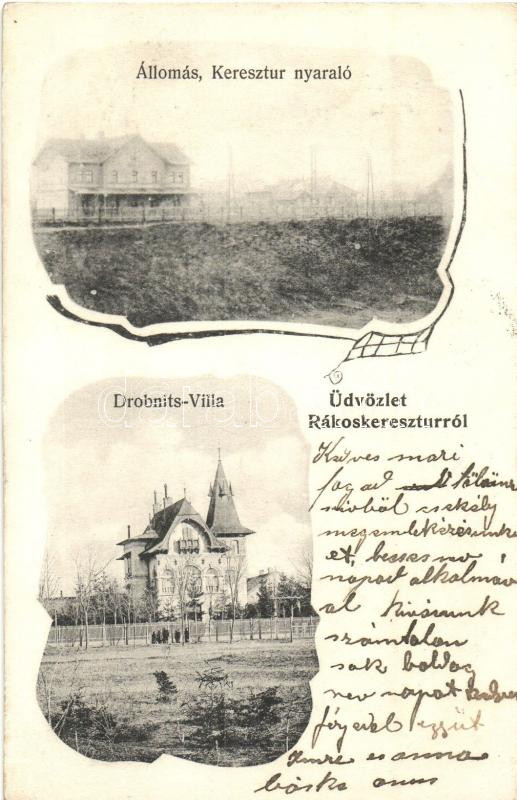 Állomás, Keresztur nyaraló
Drobnits-Villa
Üdvözlet
Rákoskereszturról
Kedves mari
fogad
szivböl csekély
megemlekézésünk
et, becses nev
napod alkalmáv
al kivánunk
számtalan
sok boldog
nev napot kedves
férjeddel eggyüt
Imre es anna